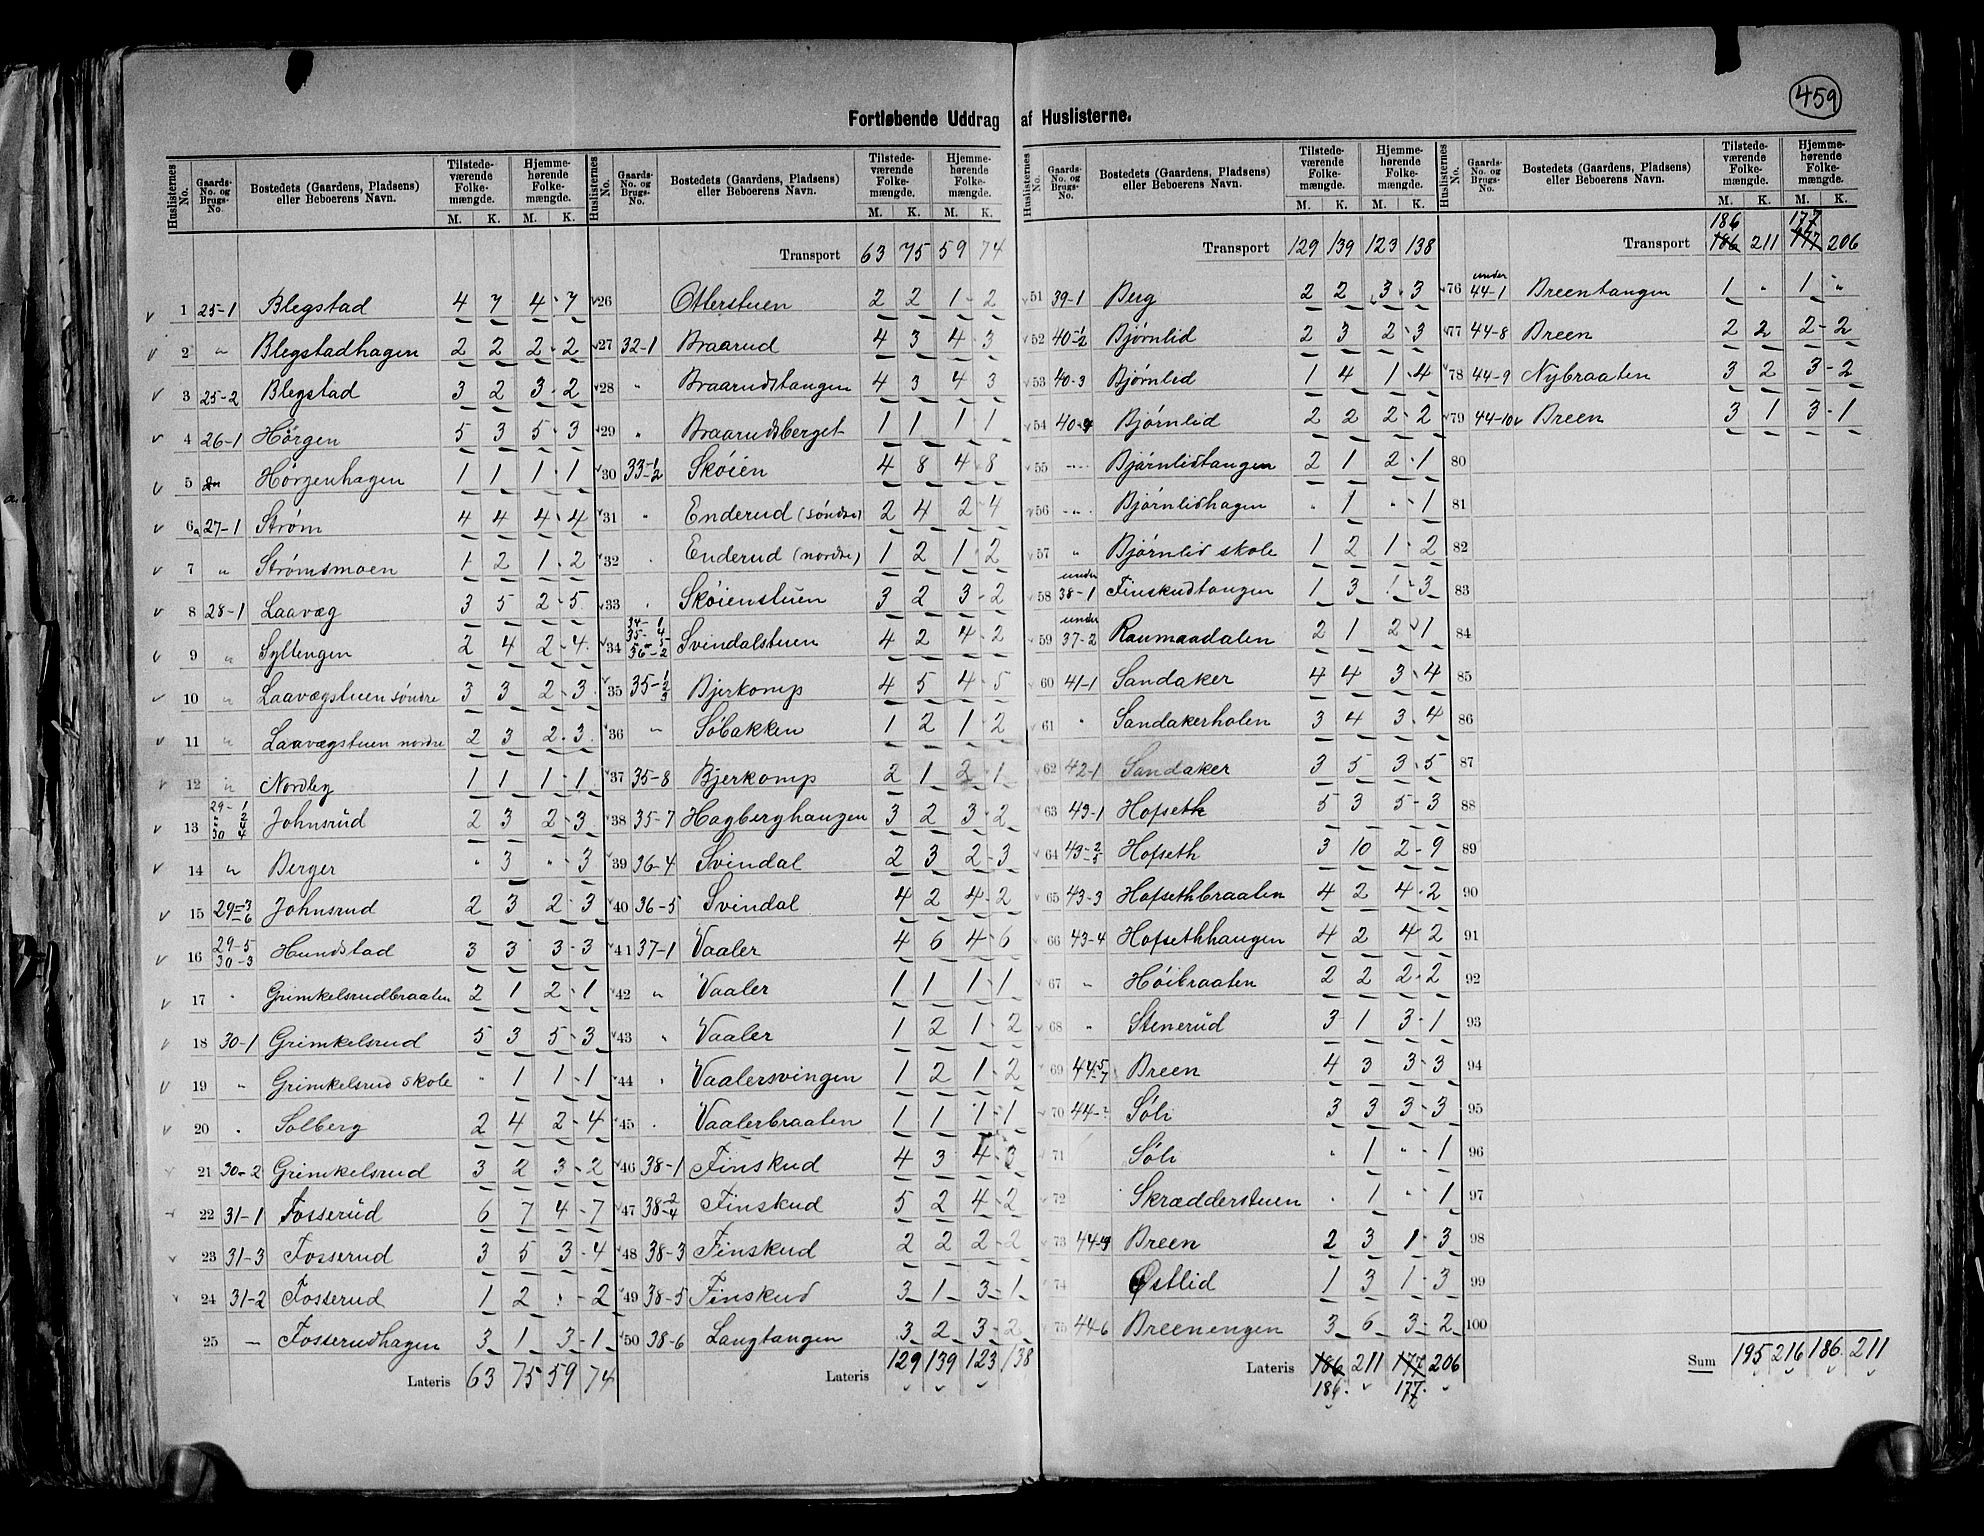 459
Fortløbende Uddrag af Huslisterne.
Huslisternes No. | Gaards-No. og Brugs-No. | Bostedets (Gaardens, Pladsens) eller Beboerens Navn. | Tilstedeværende Folkemængde. M. K. | Hjemmehørende Folkemængde. M. K.
1 25-1 Blegstad 4 7 4-7
2 " Blegstadhagen 2 2 2-2
3 25-2 Blegstad 3 2 3-2
4 26-1 Hørgen 5 3 5-3
5 Hørgenhagen 1 1 1-1
6a 27-1 Strøm 4 4 4-4
7 " Strømsmoen 1 2 1-2
8 28-1 Laavæg 3 5 2-5
9 " Syllingen 2 4 2-4
10 " Laavægstuen søndre 3 3 2-3
11 " Laavægstuen nordre 2 3 2-3
12 " Nordby 1 1 1-1
13 Johnsrud 2 3 2-3
14 " Berger " 3 "-3
15 29-3 6 Johnsrud 2 3 2-3
16 29-5 30-3 Hundstad 3 3 3-3
17 " Grimkelsrudbraaten 2 1 2-1
18 30-1 Grimkelsrud 5 3 5-3
19 " Grimkelsrud skole " 1 1-1
20 " Solberg 2 4 2-4
21 30-2 Grimkelsrud 3 2 3-2
22 31-1 Fosserud 6 7 4-7
23 31-3 Fosserud 3 5 3-4
24 31-2 Fosserud 1 2 "-2
25 - Fosserudhagen 3 1 3-1
Lateris 63 75 59 74
Huslisternes No. | Gaards-No. og Brugs-No. | Bostedets (Gaardens, Pladsens) eller Beboerens Navn. | Tilstedeværende Folkemængde. M. K. | Hjemmehørende Folkemængde. M. K.
Transport 63 75 59 74
26 Otterstuen 2 2 1-2
27 32-1 Braarud 4 3 4-3
28 " Braarudstangen 4 3 4 3
29 " Braarudsberget 1 1 1-1
30 33-1/2 Skøien 4 8 4-8
31 " Enderud (søndre) 2 4 2-4
32 " Enderud (nordre) 1 2 1-2
33 " Skøienstuen 3 2 3-2
34 34-1 35-4 36-2 Svindalstuen 4 2 4-2
35 35-1 2 3 Bjerkomp 4 5 4-5
36 " Søbakken 1 2 1-2
37 35-8 Bjerkomp 2 1 2-1
38 35-7 Hagberghaugen 3 2 3-2
39 36-4 Svindal 2 3 2-3
40 36-5 Svindal 4 2 4-2
41 37-1 Vaaler 4 6 4-6
42 " Vaaler 1 1 1-1
43 " Vaaler 1 2 1-2
44 " Vaalersvingen 1 2 1-2
45 " Vaalerbraaten 1 1 1-1
46 38-1 Finskud 4 3 4-3
47 38-2 4 Finskud 5 2 4-2
48 38-3 Finskud 2 2 2-2
49 38-5 Finskud 3 1 3-1
50 38-6 Langtangen 3 2 3-2
Lateris 129 139 123 138
Huslisternes No. | Gaards-No. og Brugs-No. | Bostedets (Gaardens, Pladsens) eller Beboerens Navn. | Tilstedeværende Folkemængde. M. K. | Hjemmehørende Folkemængde. M. K.
Transport 129 139 123 138
51 39-1 Berg 2 2 3-3
52 40-1/2 Bjørnlid 2 3 2-3
53 40-3 Bjørnlid 1 4 1-4
54 40-4 Bjørnlid 2 2 2-2
55 " Bjørnlidtangen 2 1 2-1
56 " Bjørnlidhagen " 1 "-1
57 " Bjørnlid skole 1 2 1-2
58 under 38-1 Finskudtangen 1 3 1-3
59 under 37-2 Raumaadalen 2 1 2-1
60 41-1 Sandaker 4 4 3-4
61 " Sandakerholen 3 4 3-4
62 42-1 Sandaker 3 5 3-5
63 43-1 Hofseth 5 3 5-3
64 43-2 5 Hofseth 3 10 2-9
65 43-3 Hofsethbraaten 4 2 4-2
66 43-4 Hofsethhaugen 4 2 4-2
67 " Høibraaten 2 2 2-2
68 " Stenerud 3 1 3-1
69 44-5 7 Breen 4 3 3-3
70 44-2 Søli 3 3 3-3
71 Søli " 1 "-1
72 Skrædderstuen " 1 "-1
73 Breen 2 3 1-3
74 Østlid 1 3 1-3
75 44-6 Breenengen 3 6 3-2
Lateris 186 211 177 206
186 177
Huslisternes No. | Gaards-No. og Brugs-No. | Bostedets (Gaardens, Pladsens) eller Beboerens Navn. | Tilstedeværende Folkemængde. M. K. | Hjemmehørende Folkemængde. M. K.
186 177
Transport 186 211 177 206
76 under 44-1 Breentangen 1 " 1-"
77 44-8 Breen 2 2 2-2
78 44-9 Nybraaten 3 2 3-2
79 44-10 Breen 3 1 3-1
80
81
82
83
84
85
86
87
88
89
90
91
92
93
94
95
96
97
98
99
100
Sum 195 216 186 211